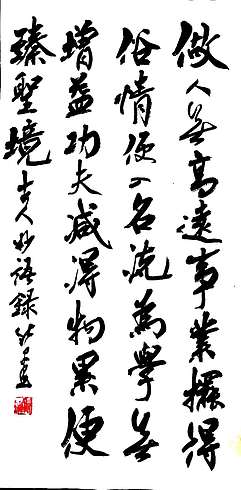 做人無高遠事業擺得
俗情便入名流為學無
增益功夫減得物累便
臻聖境 古人妙語錄